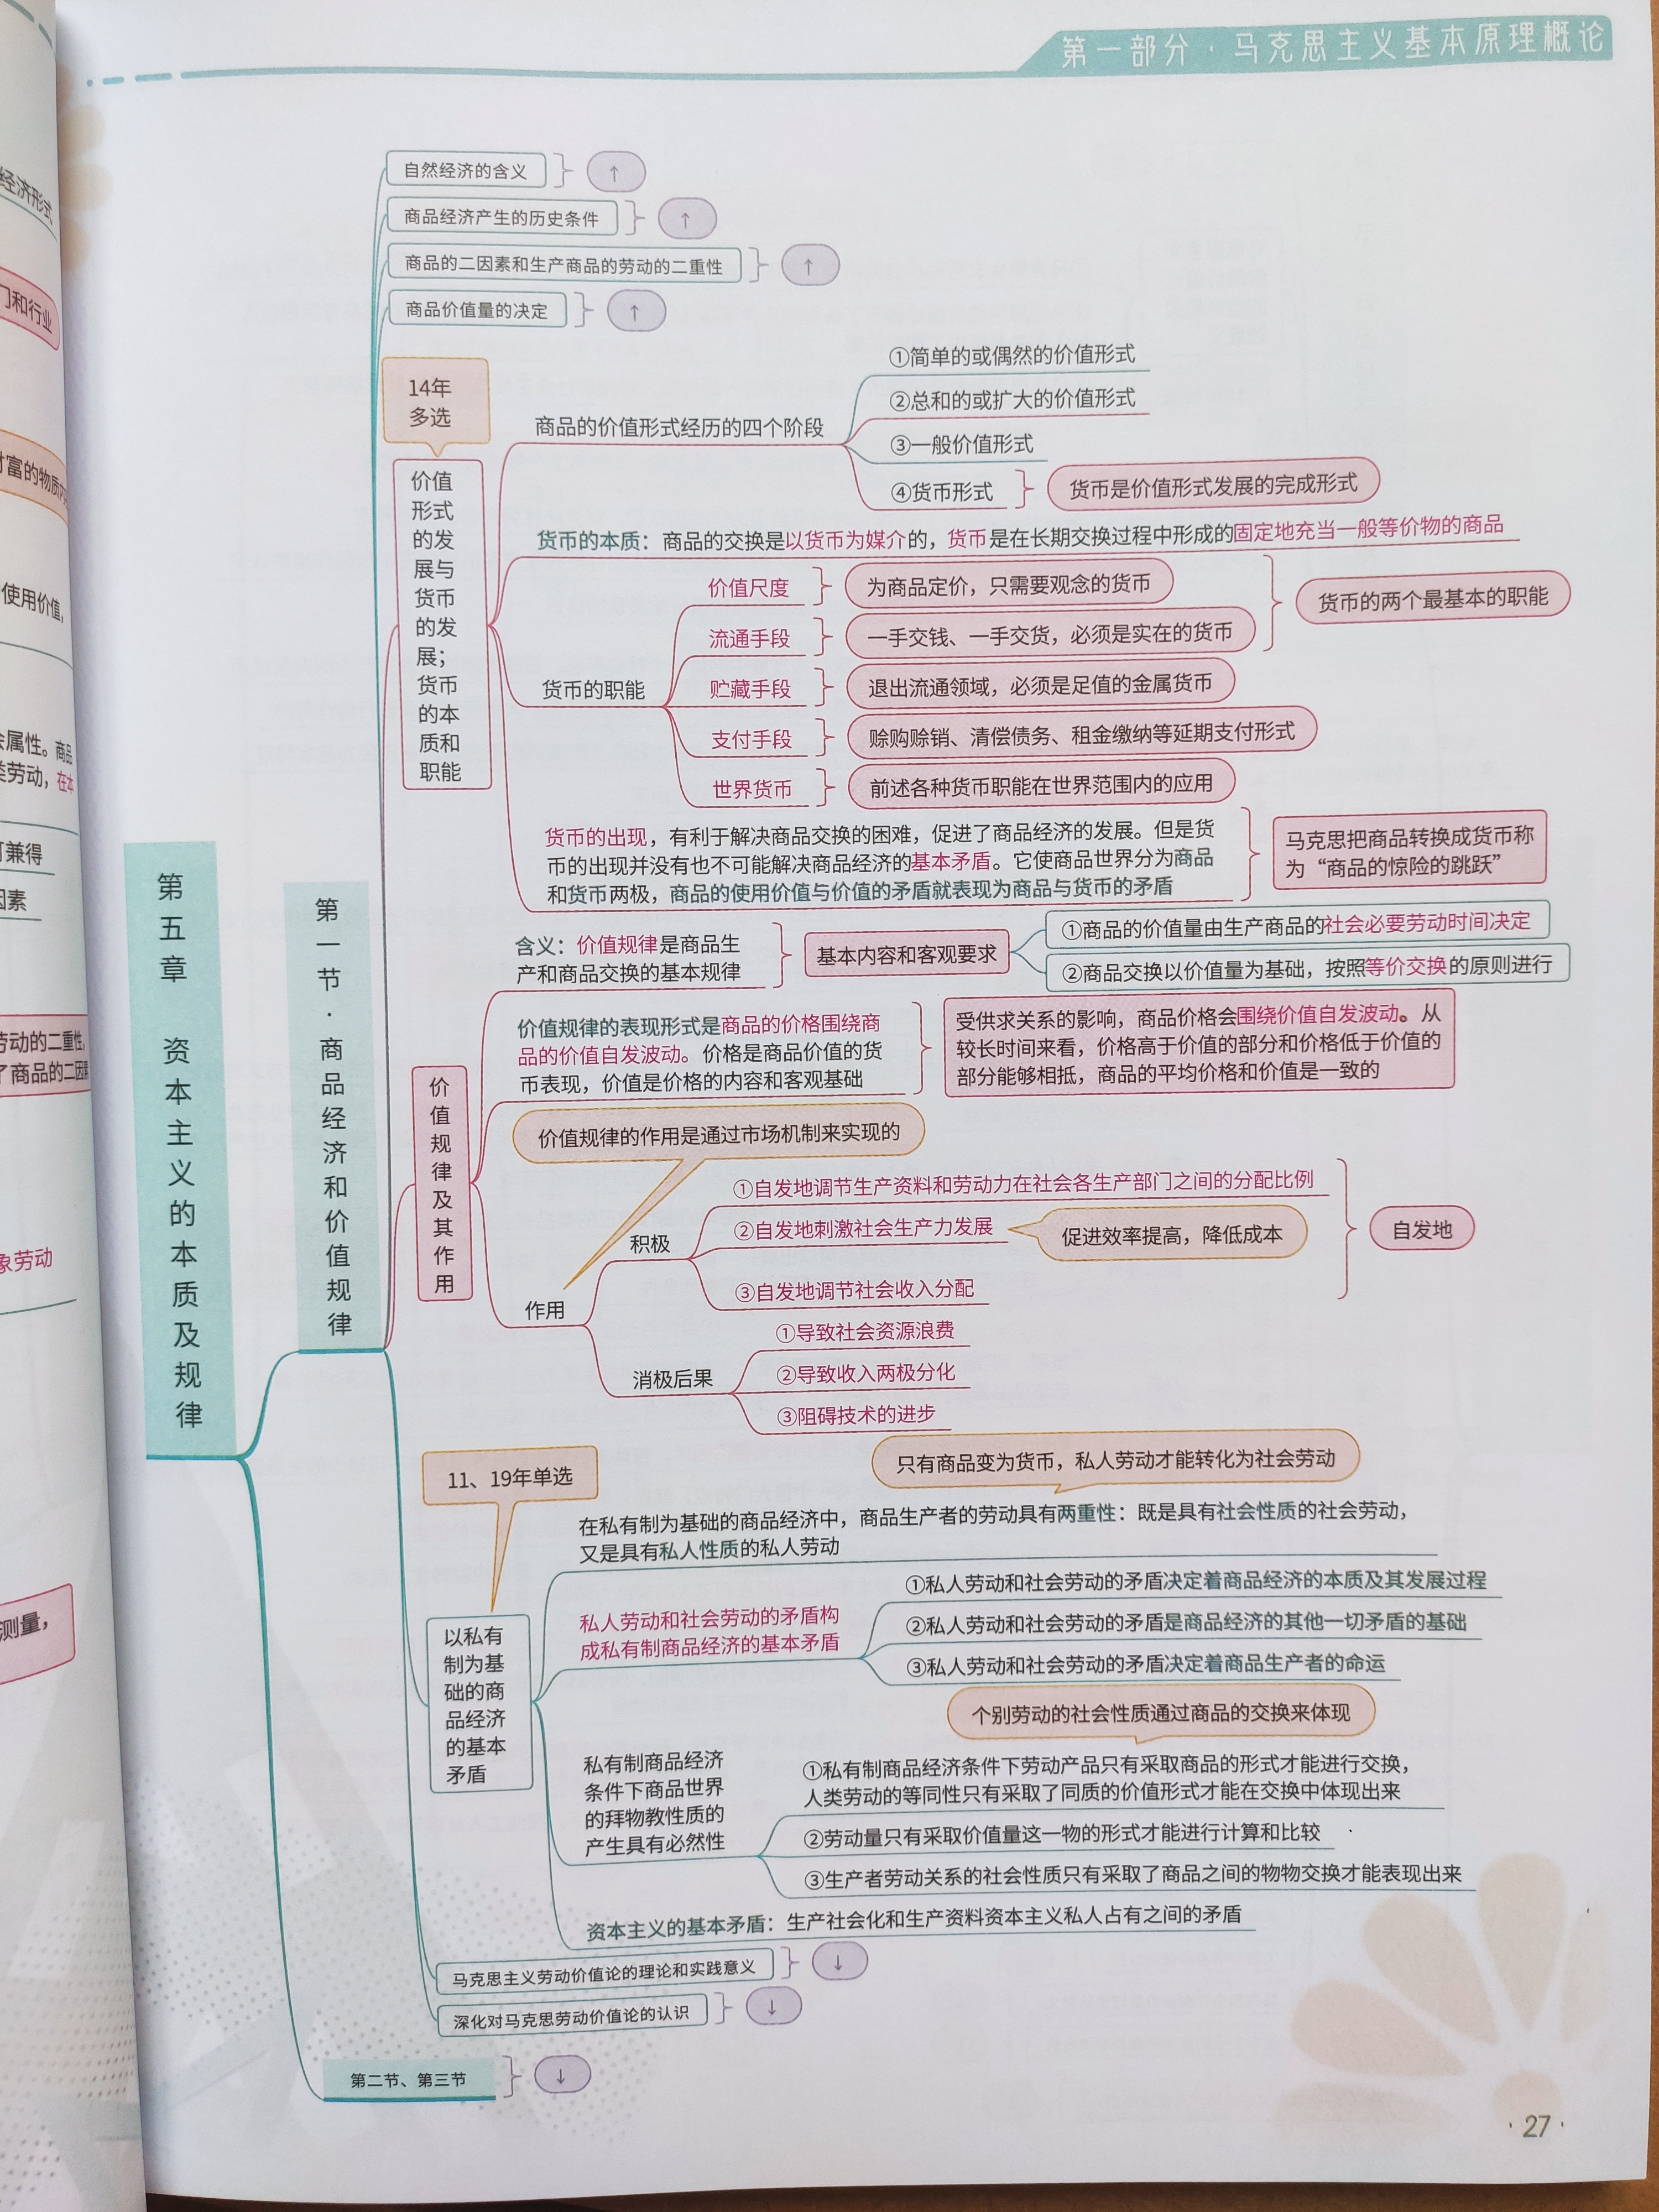 第一部分·马克思主义基本原理概论
经济形式
门和行业
财富的物质内
使用价值,
会属性。商品
类劳动，在本
可兼得
因素
劳动的二重性,
了商品的二因素
象劳动
测量,
第五章 资本主义的本质及规律
第一节·商品经济和价值规律
自然经济的含义
↑
商品经济产生的历史条件
↑
商品的二因素和生产商品的劳动的二重性
↑
商品价值量的决定
↑
14年
多选
价值
形式
的发
展与
货币
的发
展；
货币
的本
质和
职能
商品的价值形式经历的四个阶段
①简单的或偶然的价值形式
②总和的或扩大的价值形式
③一般价值形式
④货币形式
货币是价值形式发展的完成形式
货币的本质：商品的交换是以货币为媒介的，货币是在长期交换过程中形成的固定地充当一般等价物的商品
货币的职能
价值尺度
为商品定价，只需要观念的货币
流通手段
一手交钱、一手交货，必须是实在的货币
货币的两个最基本的职能
贮藏手段
退出流通领域，必须是足值的金属货币
支付手段
赊购赊销、清偿债务、租金缴纳等延期支付形式
世界货币
前述各种货币职能在世界范围内的应用
货币的出现，有利于解决商品交换的困难，促进了商品经济的发展。但是货
币的出现并没有也不可能解决商品经济的基本矛盾。它使商品世界分为商品
和货币两极，商品的使用价值与价值的矛盾就表现为商品与货币的矛盾
马克思把商品转换成货币称
为“商品的惊险的跳跃”
价值规律及其作用
含义：价值规律是商品生
产和商品交换的基本规律
基本内容和客观要求
①商品的价值量由生产商品的社会必要劳动时间决定
②商品交换以价值量为基础，按照等价交换的原则进行
价值规律的表现形式是商品的价格围绕商
品的价值自发波动。价格是商品价值的货
币表现，价值是价格的内容和客观基础
受供求关系的影响，商品价格会围绕价值自发波动。从
较长时间来看，价格高于价值的部分和价格低于价值的
部分能够相抵，商品的平均价格和价值是一致的
价值规律的作用是通过市场机制来实现的
作用
积极
①自发地调节生产资料和劳动力在社会各生产部门之间的分配比例
②自发地刺激社会生产力发展
促进效率提高，降低成本
③自发地调节社会收入分配
自发地
消极后果
①导致社会资源浪费
②导致收入两极分化
③阻碍技术的进步
11、19年单选
以私有
制为基
础的商
品经济
的基本
矛盾
只有商品变为货币，私人劳动才能转化为社会劳动
在私有制为基础的商品经济中，商品生产者的劳动具有两重性：既是具有社会性质的社会劳动，
又是具有私人性质的私人劳动
私人劳动和社会劳动的矛盾构
成私有制商品经济的基本矛盾
①私人劳动和社会劳动的矛盾决定着商品经济的本质及其发展过程
②私人劳动和社会劳动的矛盾是商品经济的其他一切矛盾的基础
③私人劳动和社会劳动的矛盾决定着商品生产者的命运
个别劳动的社会性质通过商品的交换来体现
私有制商品经济
条件下商品世界
的拜物教性质的
产生具有必然性
①私有制商品经济条件下劳动产品只有采取商品的形式才能进行交换，
人类劳动的等同性只有采取了同质的价值形式才能在交换中体现出来
②劳动量只有采取价值量这一物的形式才能进行计算和比较
③生产者劳动关系的社会性质只有采取了商品之间的物物交换才能表现出来
资本主义的基本矛盾：生产社会化和生产资料资本主义私人占有之间的矛盾
马克思主义劳动价值论的理论和实践意义
↓
深化对马克思劳动价值论的认识
↓
第二节、第三节
↓
·27·